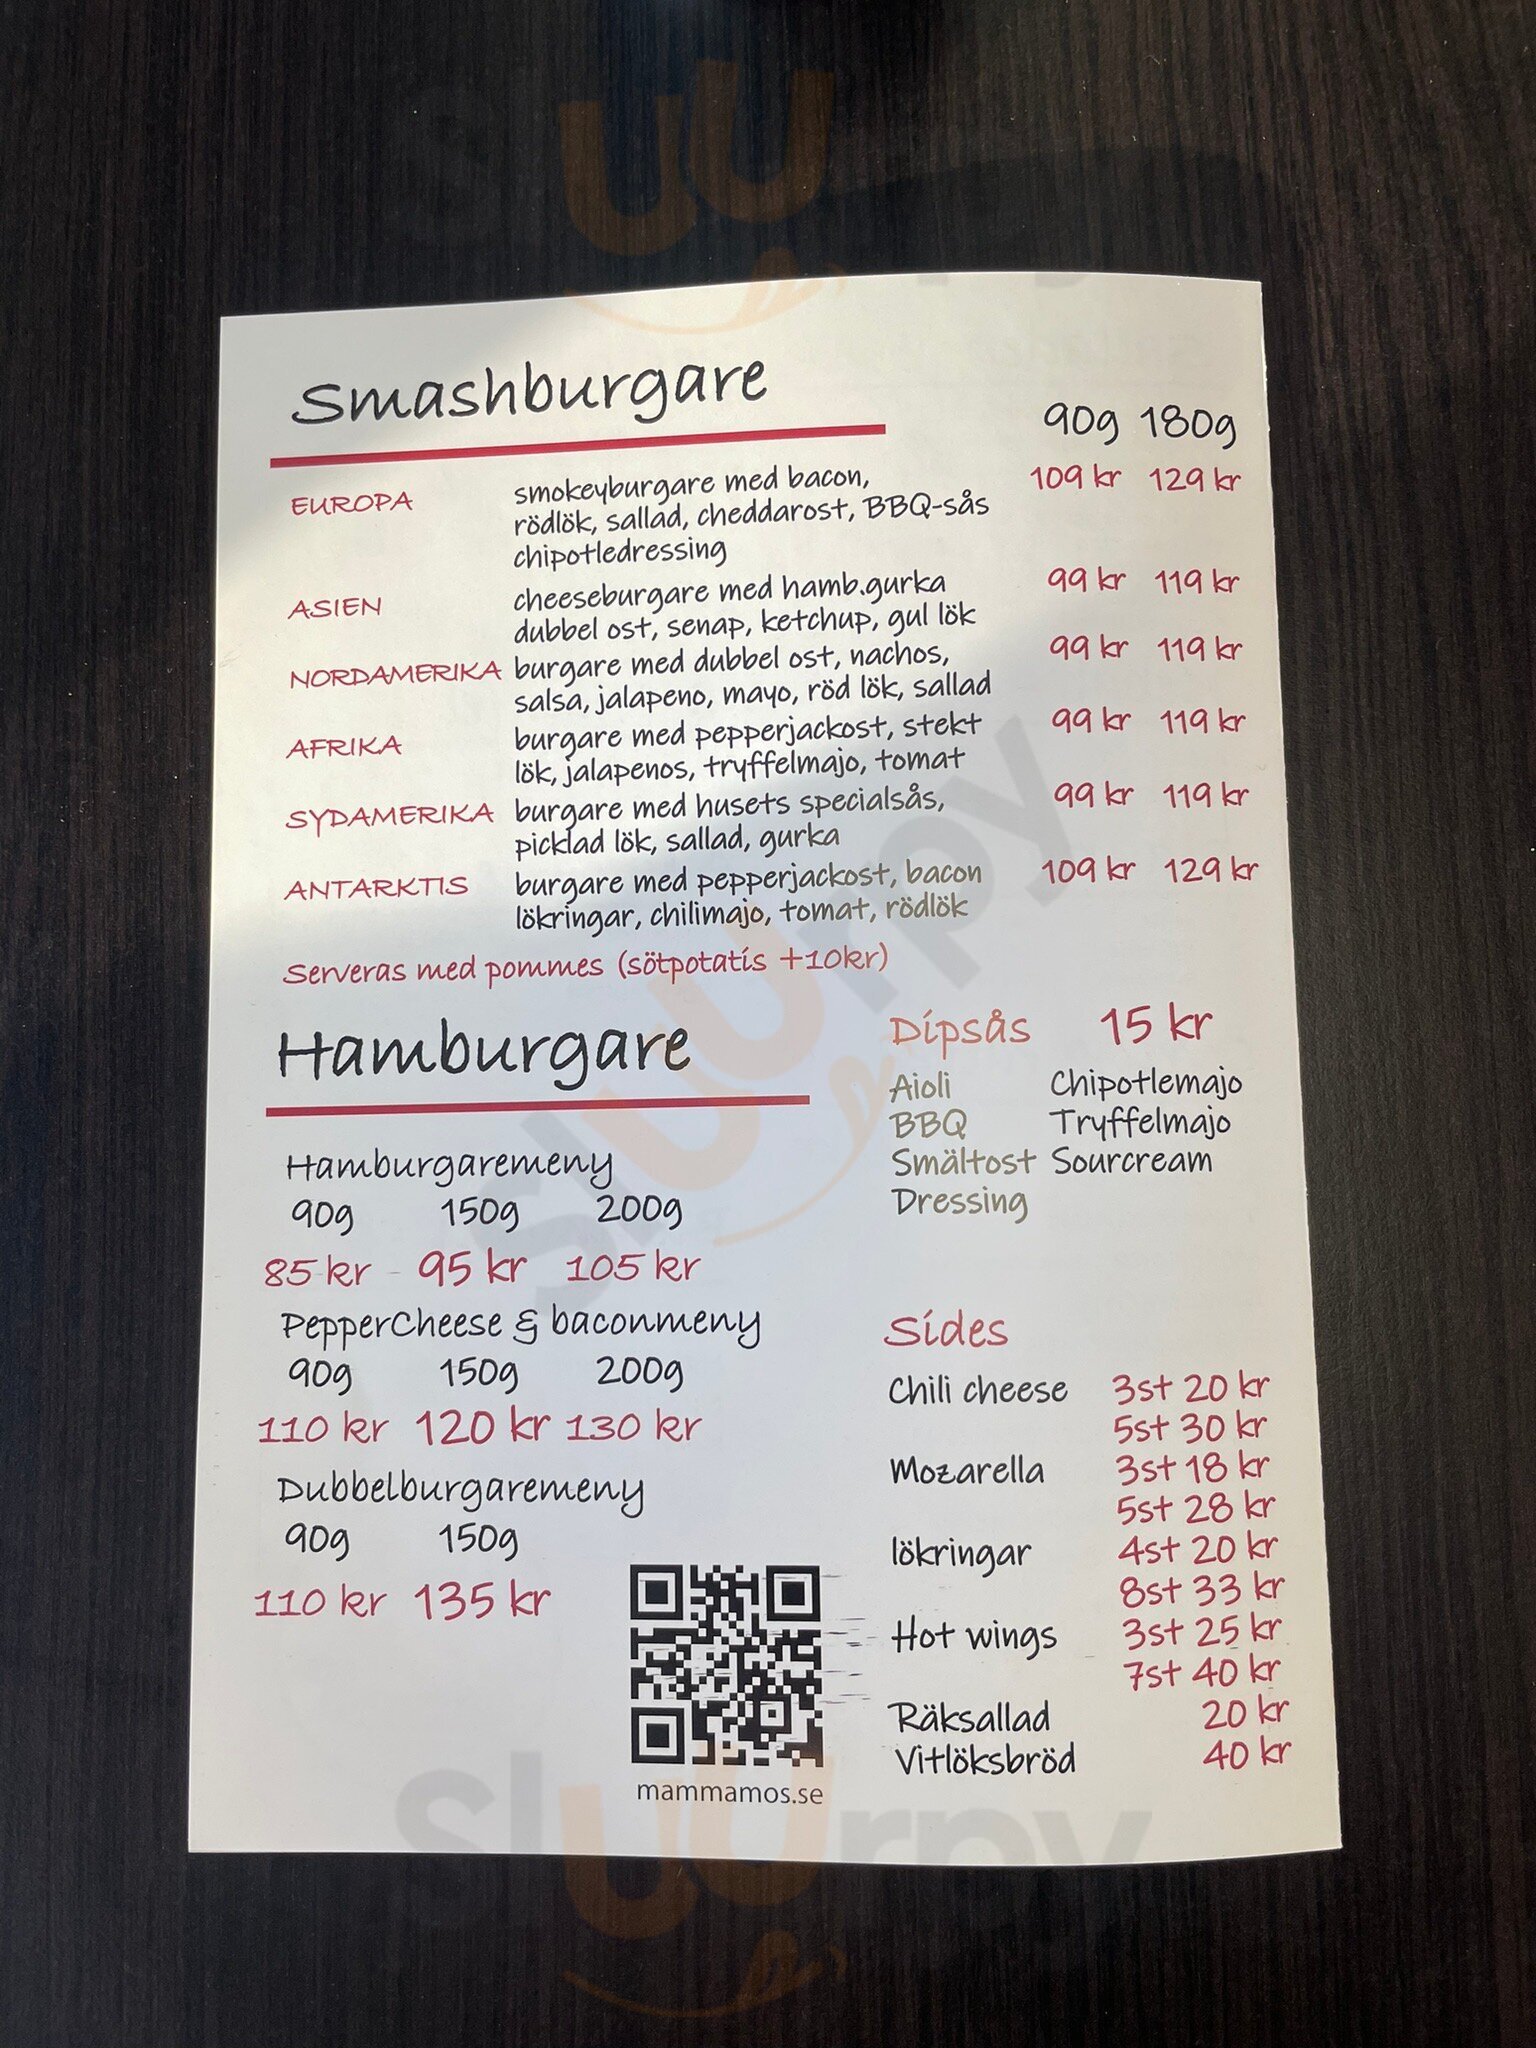 Smashburgare
90g 180g
EUROPA smokeyburgare med bacon, 109 kr 129 kr
rödlök, sallad, cheddarost, BBQ-sås
chipotledressing
ASIEN cheeseburgare med hamb.gurka 99 kr 119 kr
dubbel ost, senap, ketchup, gul lök
NORDAMERIKA burgare med dubbel ost, nachos, 99 kr 119 kr
salsa, jalapeno, mayo, röd lök, sallad
AFRIKA burgare med pepperjackost, stekt 99 kr 119 kr
lök, jalapenos, tryffelmajo, tomat
SYDAMERIKA burgare med husets specialsås, 99 kr 119 kr
picklad lök, sallad, gurka
ANTARKTIS burgare med pepperjackost, bacon 109 kr 129 kr
lökringar, chilimajo, tomat, rödlök
Serveras med pommes (sötpotatis +10kr)
Hamburgare
Hamburgaremeny
90g 150g 200g
85 kr 95 kr 105 kr
PepperCheese & baconmeny
90g 150g 200g
110 kr 120 kr 130 kr
Dubbelburgaremeny
90g 150g
110 kr 135 kr
mammamos.se
Dipsås 15 kr
Aioli Chipotlemajo
BBQ Tryffelmajo
Smältost Sourcream
Dressing
Sides
Chili cheese 3st 20 kr
5st 30 kr
Mozarella 3st 18 kr
5st 28 kr
lökringar 4st 20 kr
8st 33 kr
Hot wings 3st 25 kr
7st 40 kr
Räksallad 20 kr
Vitlöksbröd 40 kr
sluurpy
sluurpy